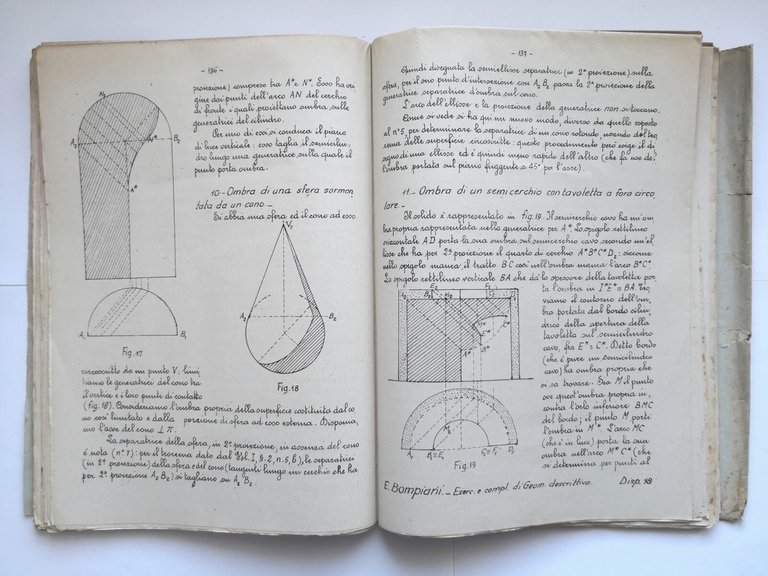 - 136 -
proiezione) compreso tra A* e N*. Esso ha ori
gine dai punti dell'arco AN del cerchio
di fronte i quali proiettano ombra sulle
generatrici del cilindro.
Per uno di essi si conduca il piano
di luce verticale: esso taglia il semicilin
dro lungo una generatrice sulla quale il
punto porta ombra.
10.- Ombra di una sfera sormon
tata da un cono.-
Si abbia una sfera ed il cono ad essa
N₂
A₂
B₂
N*
A*
A₁
B₁
Fig. 17
V₂
A₂
B₂
Fig. 18
circoscritto da un punto V; limi
tiamo le generatrici del cono tra
il vertice e i loro punti di contatto
(fig. 18). Consideriamo l'ombra propria della superficie costituita dal co
no così limitato e dalla porzione di sfera ad esso esterna. Disponia,
mo l'asse del cono ⊥ π.
La separatrice della sfera, in 2ª proiezione, in assenza del cono
è nota (n° 7): per il teorema dato dal Vol. I, §. 2, n. 5, b), le separatrici
(in 2ª proiezione) della sfera e del cono (tangenti lungo un cerchio che ha
per 2ª proiezione A₂ B₂) si tagliano su A₂ B₂.
- 137 -
Quindi disegnata la semiellisse separatrice (in 2ª proiezione) sulla
sfera, per il suo punto d'intersezione con A₂ B₂ passa la 2ª proiezione della
generatrice separatrice d'ombra sul cono.
L'arco dell'ellisse e la proiezione della generatrice non si toccano.
Come si vede si ha qui un nuovo modo, diverso da quello esposto
al n° 5, per determinare la separatrice di un cono rotondo, usando del teo
rema delle superficie circoscritte: questo procedimento però esige il di
segno di una ellisse ed è quindi meno rapido dell'altro (che fa uso del
l'ombra portata sul piano fuggente a 45° per l'asse).
11.- Ombra di un semicerchio con tavoletta a foro circo
lare.-
Il solido è rappresentato in fig. 19. Il semicerchio cavo ha un'om
bra propria rappresentata nella generatrice per A*. Lo spigolo rettilineo
orizzontale AD porta la sua ombra sul semicerchio cavo, secondo un'el
lisse che ha per 2ª proiezione il quarto di cerchio A* B* C* D₂; siccome
nello spigolo manca il tratto BC così nell'ombra manca l'arco B* C*.
Lo spigolo rettilineo verticale BA che dà lo spessore della tavoletta por
ta l'ombra in I* E* = BA. Tro
viamo il contorno dell'om
bra portata dal bordo cilin
drico della apertura della
tavoletta sul semicilindro
cavo, fra E* e C*. Detto bordo
(che è pure un semicilindro
cavo) ha ombra propria che
si sa trovare. Sia M il punto
ove quest'ombra propria in,
contra l'orlo inferiore BMC
del bordo; il punto M porti
l'ombra in M*. L'arco MC
(che è in luce) porta la sua
ombra nell'arco M* C* (che
si determina per punti al
E*
C*
B*
A*
A₁
B₁≡E₁
M₁
D₁
Fig. 19
E. Bompiani.- Eserc. e compl. di Geom. descrittiva.
Disp. 18